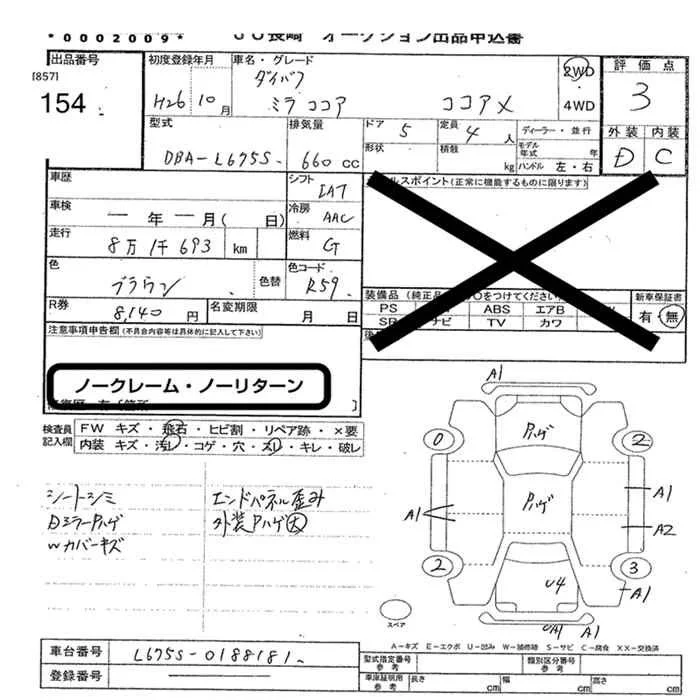 *0002009*
JU長崎 オークション出品申込書
出品番号
[857]
154
初度登録年月
H26 10月
車名・グレード
ダイハツ
ミラココア ココアX
2WD
・
4WD
評価点
3
外装 内装
D C
型式
DBA-L675S
排気量
660 cc
ドア 5
定員 4 人
形状
積載 kg
ディーラー・並行
モデル年式 年
ハンドル 左・右
車歴
車検
― 年 ― 月( 日)
走行
8万1千693 km
色
ブラウン
色替
R券
8,140 円
名変期限
月 日
シフト
IAT
冷房
AAC
燃料
G
色コード
R59
ルスポイント(正常に機能するものに限ります)
装備品(純正品 ○をつけてください
PS ABS エアB
SR ナビ TV カワ
新車保証書
有・無
注意事項申告欄(不具合内容等は具体的に記入して下さい)
ノークレーム・ノーリターン
検査員記入欄
FW キズ・飛石・ヒビ割・リペア跡・×要
内装 キズ・汚レ・コゲ・穴・スレ・キレ・破レ
シートシミ
DミラーPハゲ
Wカバーキズ
エンドパネル歪み
外装Pハゲ大
A1
Pハゲ
0
2
Pハゲ
A1
A1
A2
2
3
U4
A1
UA1 A1
スペア
A-キズ E-エクボ U-凹み W-補修跡 S-サビ C-腐食 XX-交換済
車台番号
L675S-0188181
登録番号
型式指定番号参考
類別区分番号参考
車庫証明用参考
長さ cm
幅 cm
高さ cm